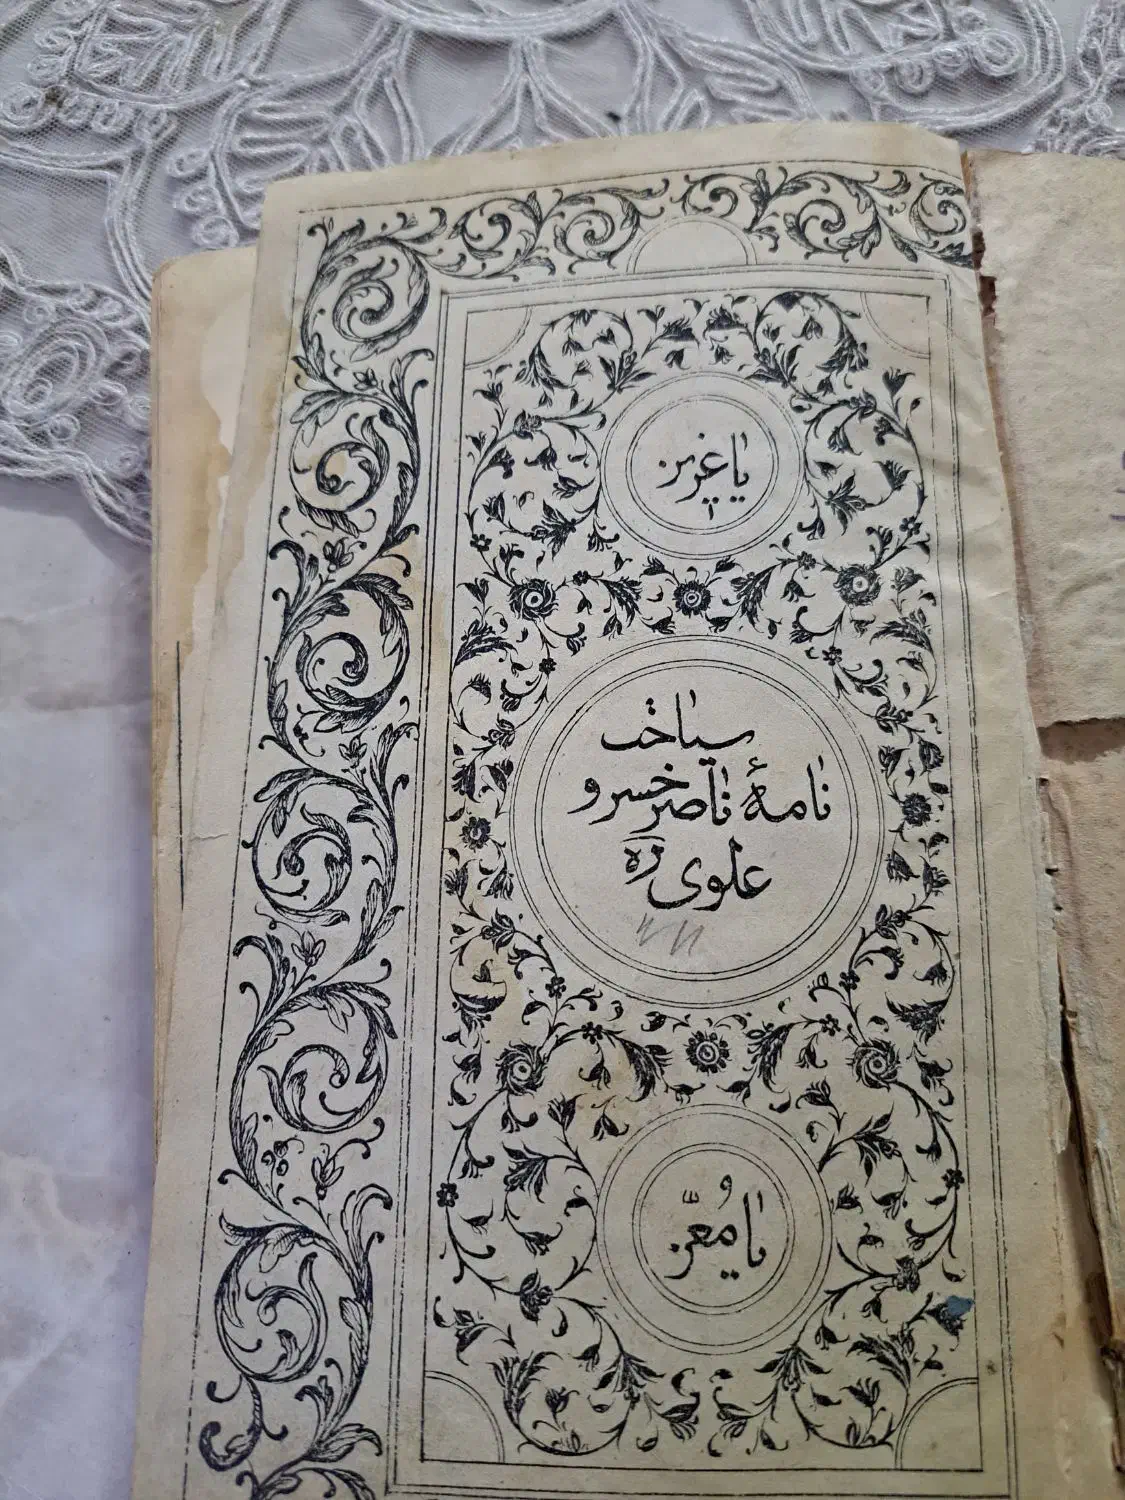 یا عزیز
سیاحت
نامهٔ ناصر خسرو
علوی ره
یا مُعزّ